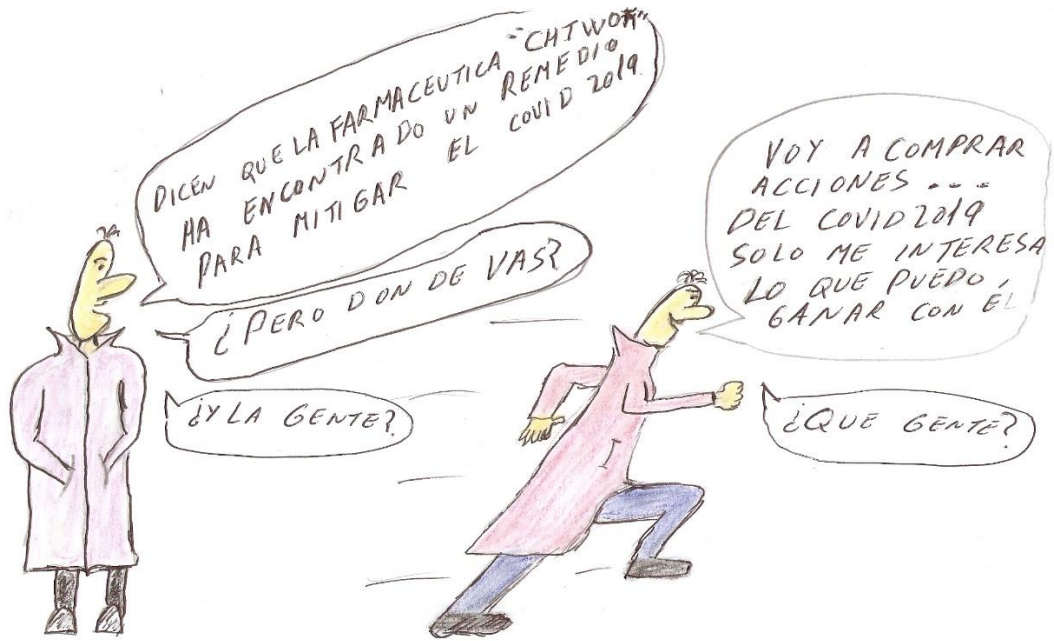 DICEN QUE LA FARMACEUTICA "CHTWOA"
HA ENCONTRADO UN REMEDIO
PARA MITIGAR EL COVID 2019
¿PERO DONDE VAS?
VOY A COMPRAR
ACCIONES ...
DEL COVID 2019
SOLO ME INTERESA
LO QUE PUEDO
GANAR CON ÉL
¿Y LA GENTE?
¿QUE GENTE?